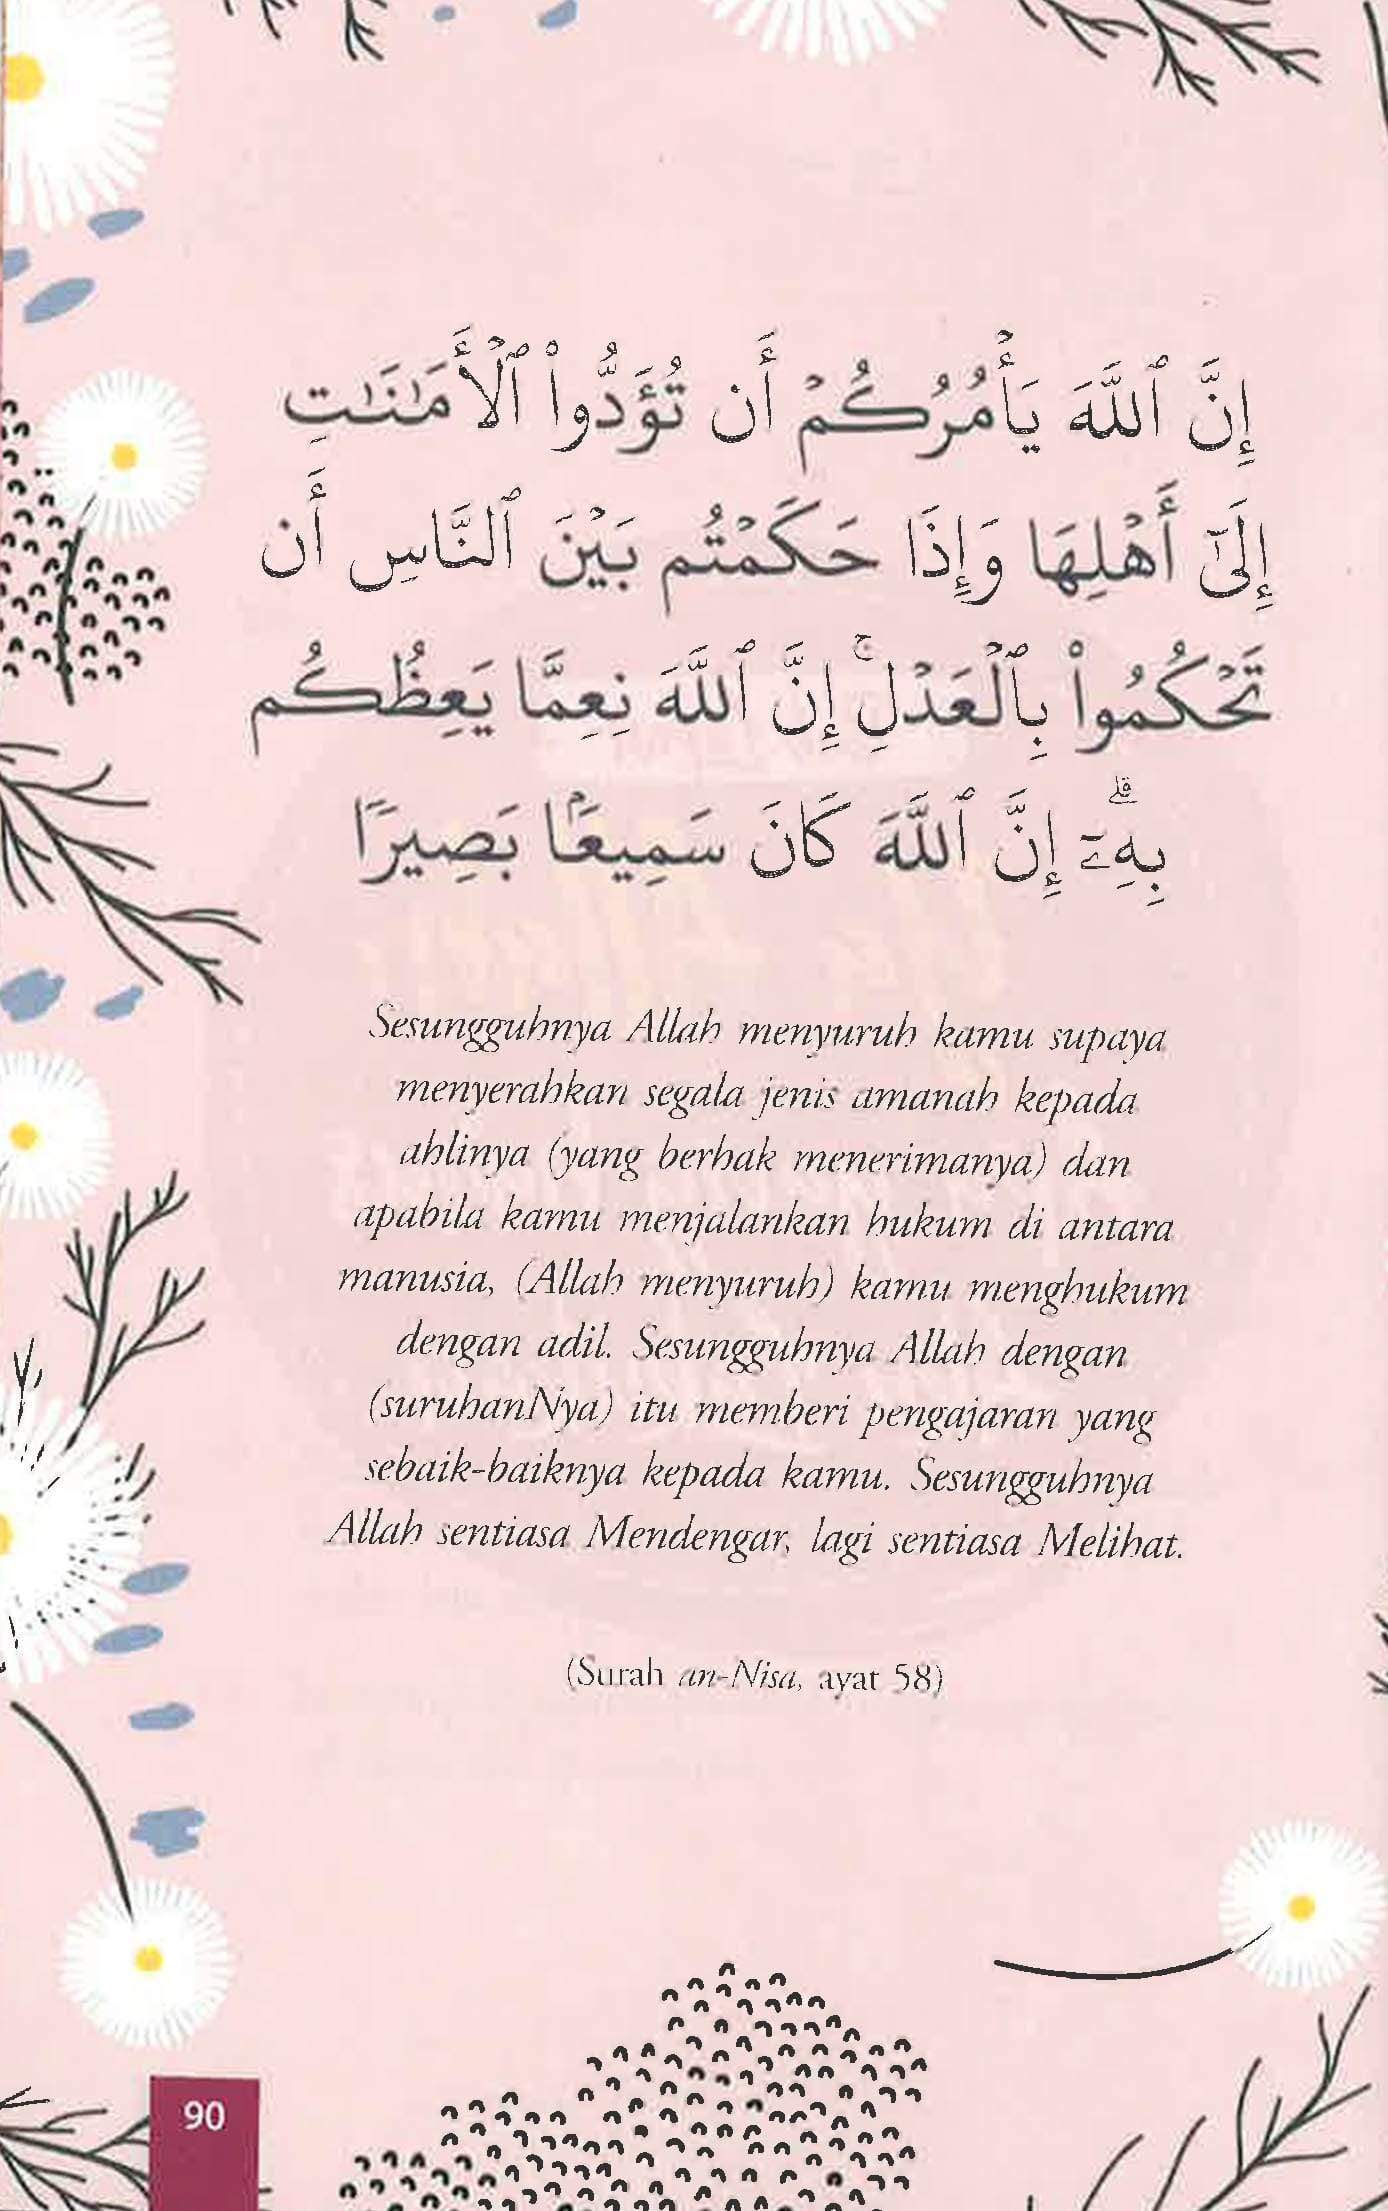 إِنَّ ٱللَّهَ يَأۡمُرُكُمۡ أَن تُؤَدُّواْ ٱلۡأَمَٰنَٰتِ
إِلَىٰٓ أَهۡلِهَا وَإِذَا حَكَمۡتُم بَيۡنَ ٱلنَّاسِ أَن
تَحۡكُمُواْ بِٱلۡعَدۡلِۚ إِنَّ ٱللَّهَ نِعِمَّا يَعِظُكُم
بِهِۦٓۗ إِنَّ ٱللَّهَ كَانَ سَمِيعَۢا بَصِيرٗا
Sesungguhnya Allah menyuruh kamu supaya
menyerahkan segala jenis amanah kepada
ahlinya (yang berhak menerimanya) dan
apabila kamu menjalankan hukum di antara
manusia, (Allah menyuruh) kamu menghukum
dengan adil. Sesungguhnya Allah dengan
(suruhanNya) itu memberi pengajaran yang
sebaik-baiknya kepada kamu. Sesungguhnya
Allah sentiasa Mendengar, lagi sentiasa Melihat.
(Surah an-Nisa, ayat 58)
90